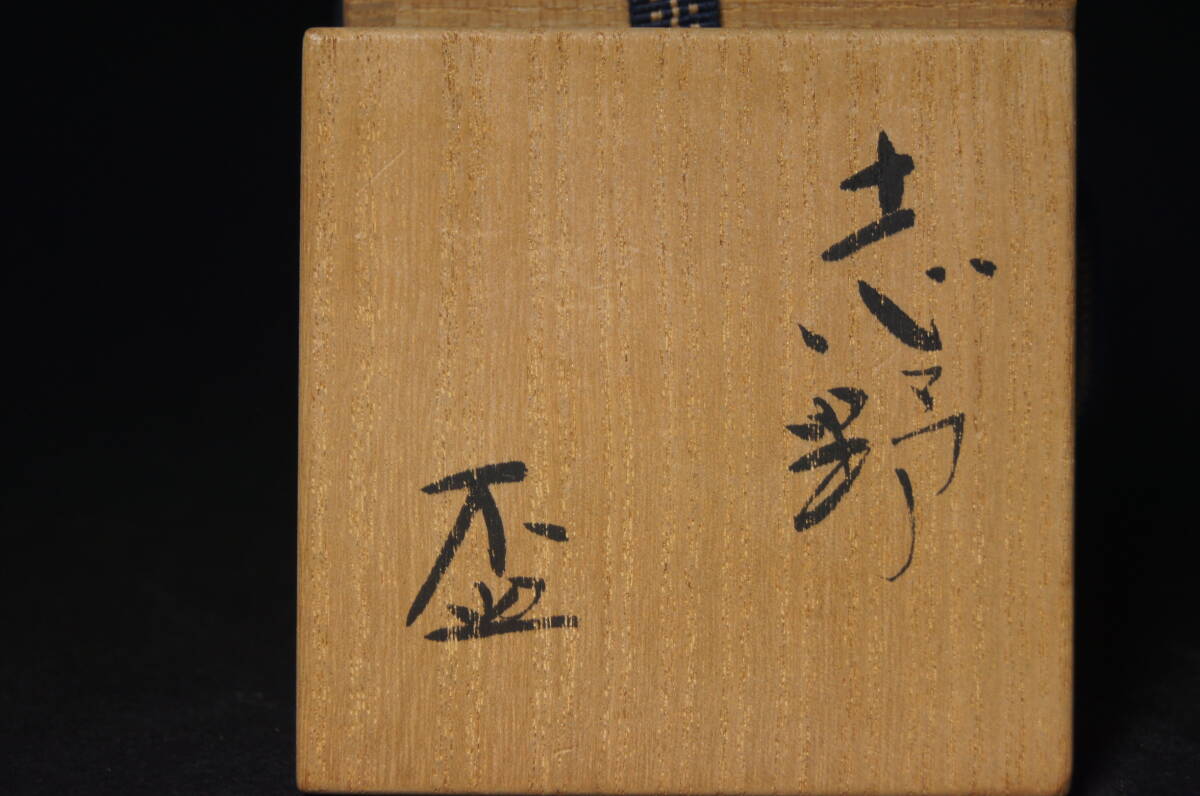 志野
盃